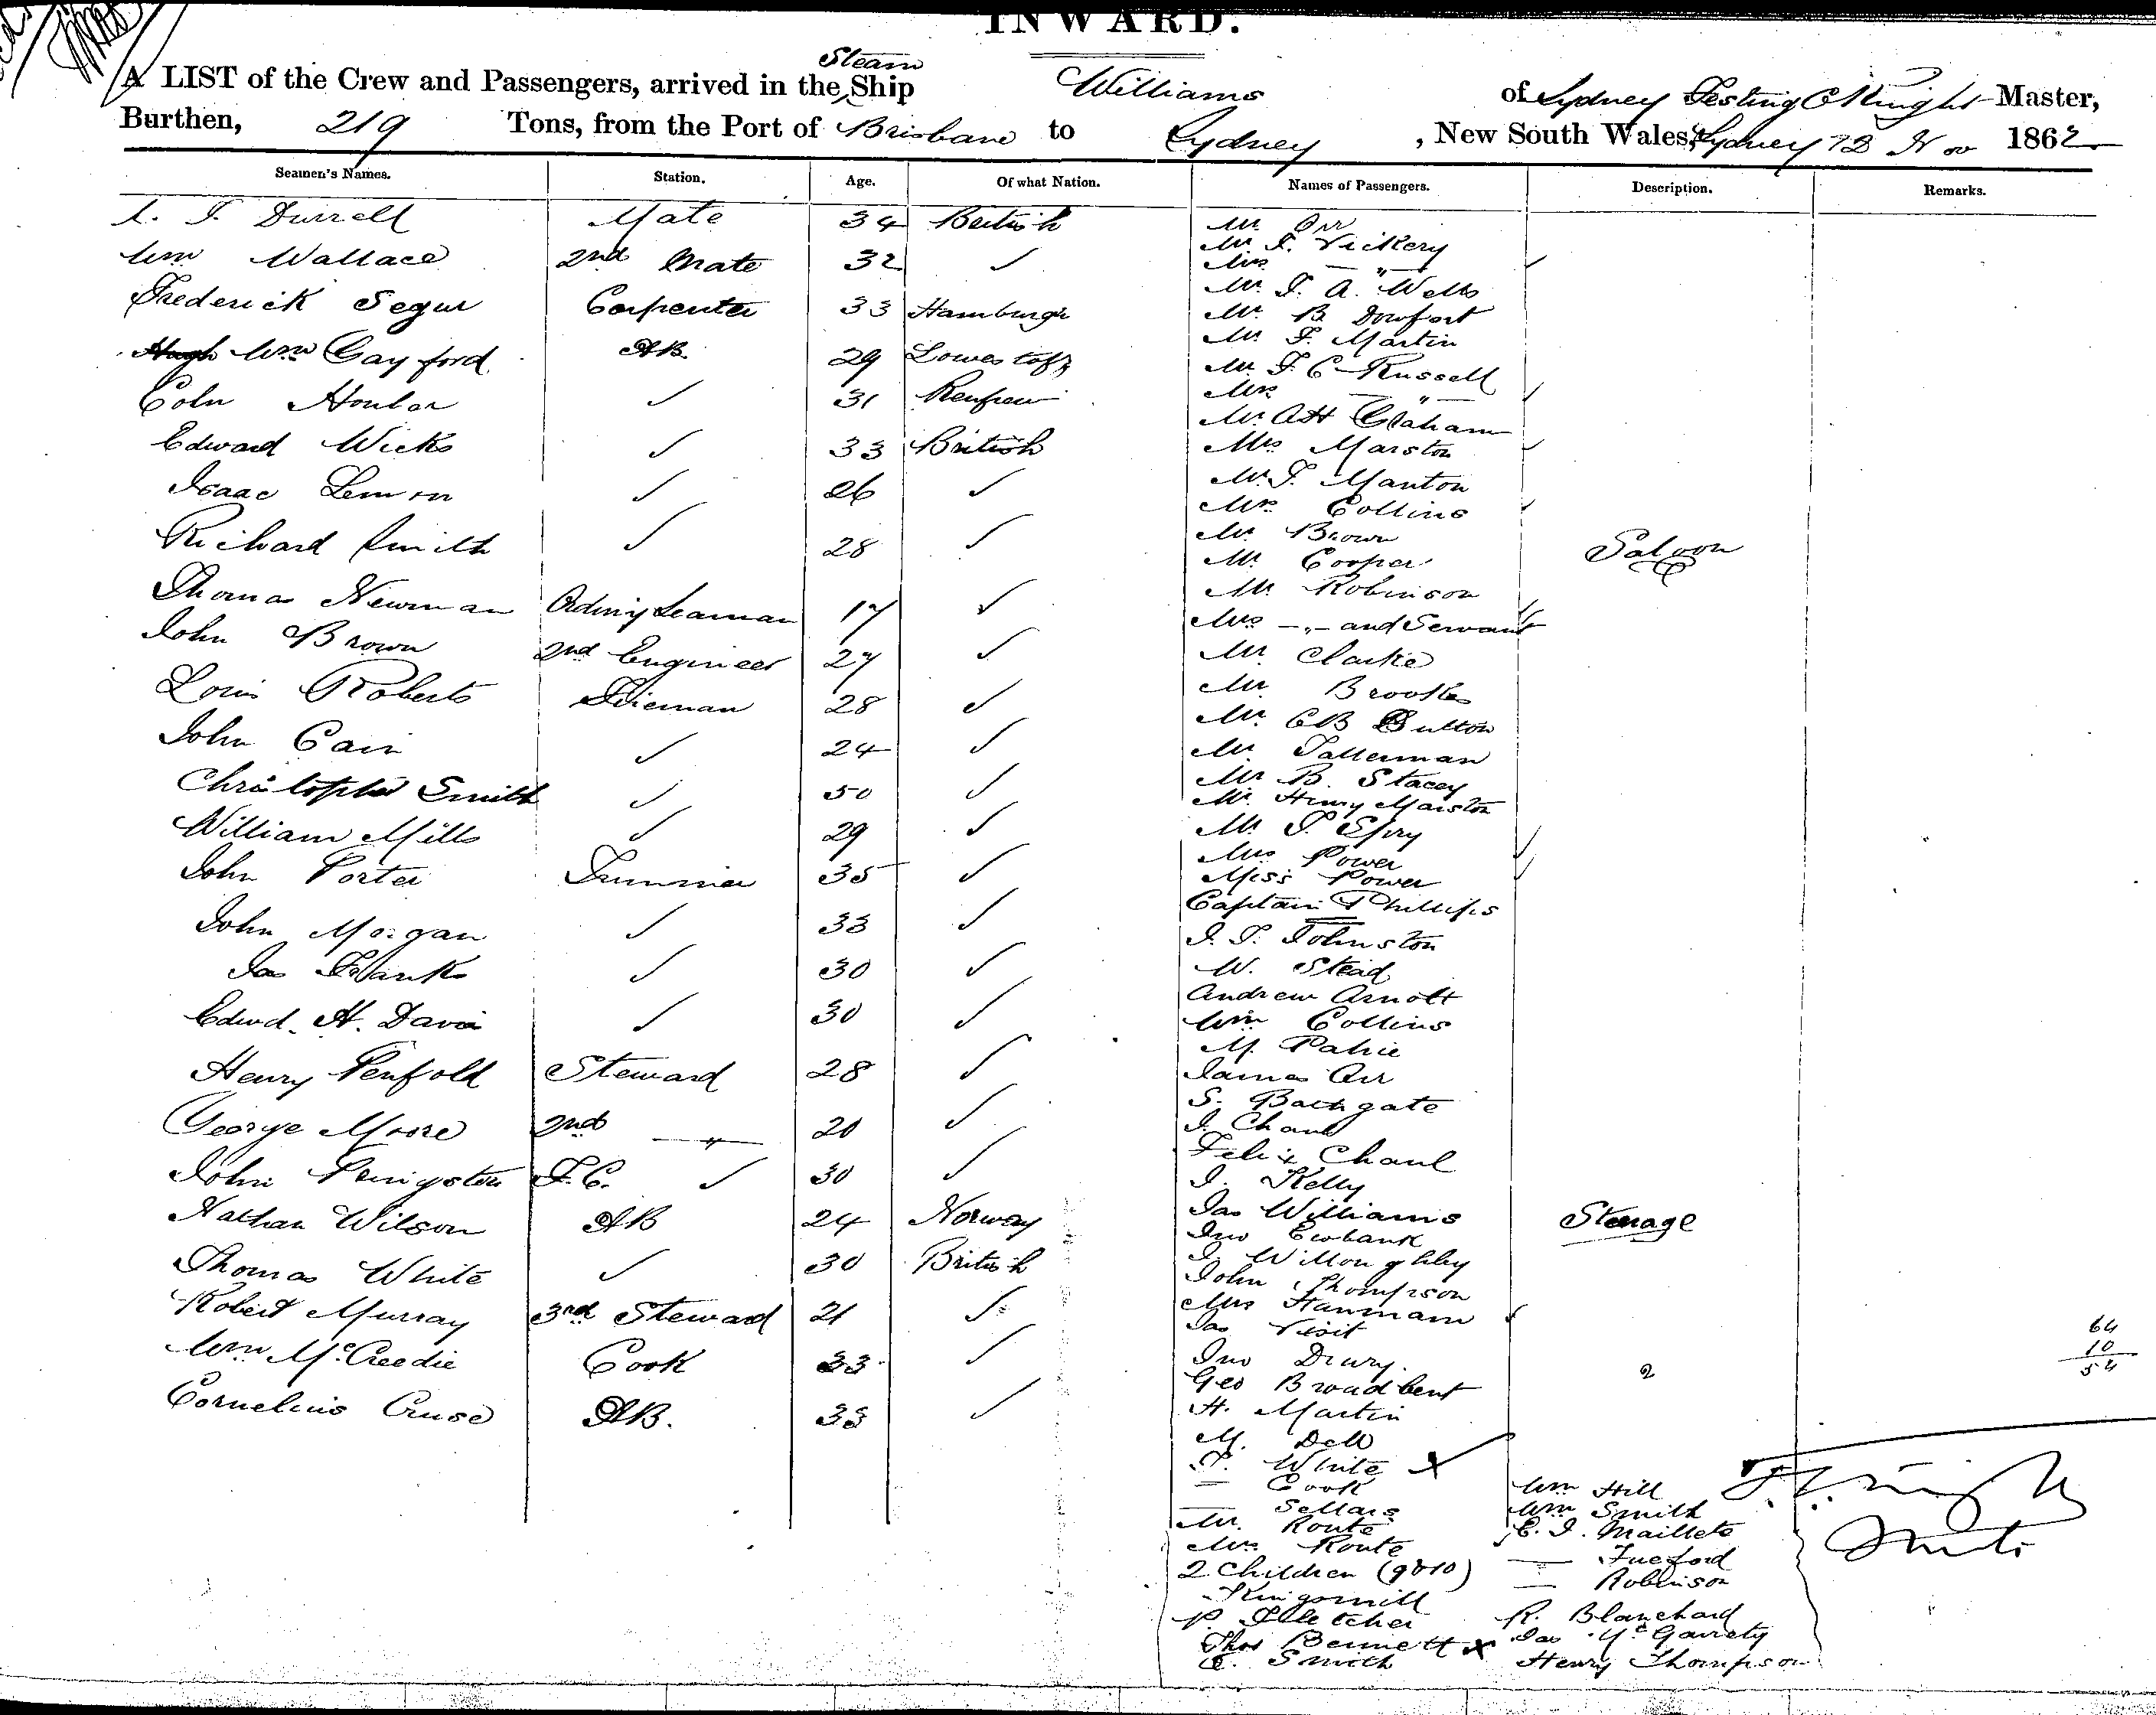 INWARD.
A LIST of the Crew and Passengers, arrived in the Steam Ship Williams of Sydney Master,
Burthen, 219 Tons, from the Port of Brisbane to Sydney, New South Wales, Sydney Nov 1862
Seamen's Names. Station. Age. Of what Nation. Names of Passengers. Description. Remarks.
Durrell Mate 34 British
Wm Wallace 2nd Mate 32 ✓
Frederick Segur Carpenter 33 Hamburgh
Hugh Wm Gayford AB. 29 Lowestoft
Coln ✓ 31 Renfrew
Edward Wicks ✓ 33 British
Isaac Lemon ✓ 26 ✓
Richard Smith ✓ 28 ✓
Thomas Newman Seaman 17 ✓
John Brown 2nd Engineer 27 ✓
Louis Roberts Fireman 28 ✓
John Cain ✓ 24 ✓
Christopher Smith ✓ 50 ✓
William Mills ✓ 29 ✓
John Porter Trimmer 35 ✓
John Morgan ✓ 33 ✓
Jas Franks ✓ 30 ✓
Edwd. H. Davis ✓ 30 ✓
Henry Penfold Steward 28 ✓
George Moore 2nd —"— 20 ✓
John ✓ 30 ✓
Nathan Wilson AB 24 Norway
Thomas White ✓ 30 British
Robert Murray 3rd Steward 21 ✓
Wm McCreedie Cook 33 ✓
Cornelius Cruse AB. 33 ✓
Mr Orr
Mr J. Vickery
Mrs —"—
Mr. J. A. Wells
Mr B
Mr F. Martin
Mr J C Russell
Mrs —"—
Mr AH Graham
Mrs Marston
Mr. J. Manton
Mrs Collins
Mr Brown
Mr Cooper
Saloon
Mr Robinson
Mrs —"— and Servant
Mr Clarke
Mr Brookes
Mr CB Dutton
Mr Tallerman
Mr B. Stacey
Mr. Henry Marston
Mr J. Spry
Mrs Power
Miss Power
Captain Phillips
J. T. Johnston
W. Stead
Andrew Arnott
Wm Collins
M. Patrie
James Orr
S. Bathgate
J. Chaul
Felix Chaul
J. Kelly
Jas Williams
Steerage
Jno Ewbank
J. Willoughby
John Thompson
Mrs Hanmam
Jas Visit
Jno Drury.
Geo Broadbent
2
64
10
54
H. Martin
M. Dell
T. White X
— Cook
— Sellars
Mr. Route
Mrs Route
2 Children (9&10)
Kingsmill
P. Fletcher
Thos Bennett X
C. Smith
Wm Hill
Wm Smith
C. J. Maillete
— Robinson
R. Blanchard
Jas McGarrety
Henry Thompson